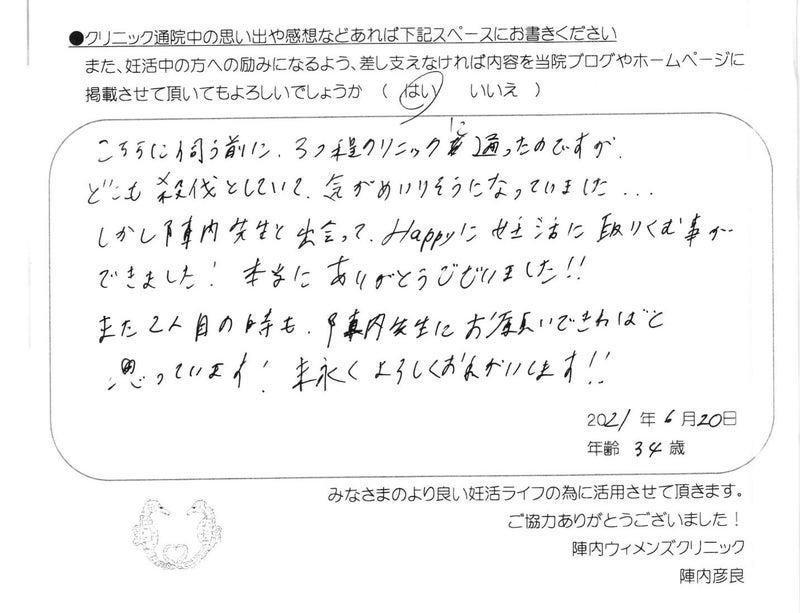 ●クリニック通院中の思い出や感想などあれば下記スペースにお書きください
また、妊活中の方への励みになるよう、差し支えなければ内容を当院ブログやホームページに
掲載させて頂いてもよろしいでしょうか （ はい　いいえ ）
こちらに伺う前に、3つ程クリニックに通ったのですが、
どこも殺伐としていて、気がめいりそうになっていました...
しかし陣内先生と出会って、Happyに妊活に取りくむ事が
できました! 本当にありがとうございました!!
また2人目の時も、陣内先生にお願いできればと
思っています! 末永くよろしくおねがいします!!
2021年6月20日
年齢 34歳
みなさまのより良い妊活ライフの為に活用させて頂きます。
ご協力ありがとうございました！
陣内ウィメンズクリニック
陣内彦良